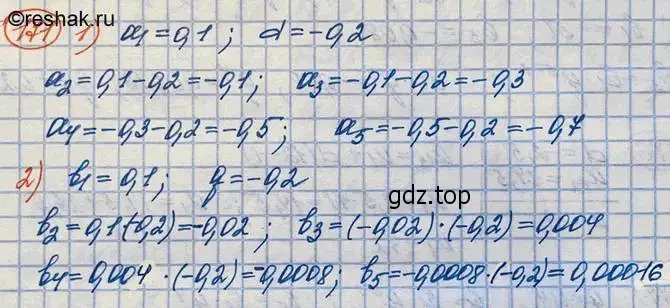 ©reshak.ru
171 1) a₁=0,1; d=-0,2
a₂=0,1-0,2=-0,1; a₃=-0,1-0,2=-0,3
a₄=-0,3-0,2=-0,5; a₅=-0,5-0,2=-0,7
2) b₁=0,1; q=-0,2
gdz.top
b₂=0,1·(-0,2)=-0,02; b₃=(-0,02)·(-0,2)=0,004
b₄=0,004·(-0,2)=-0,0008; b₅=-0,0008·(-0,2)=0,00016